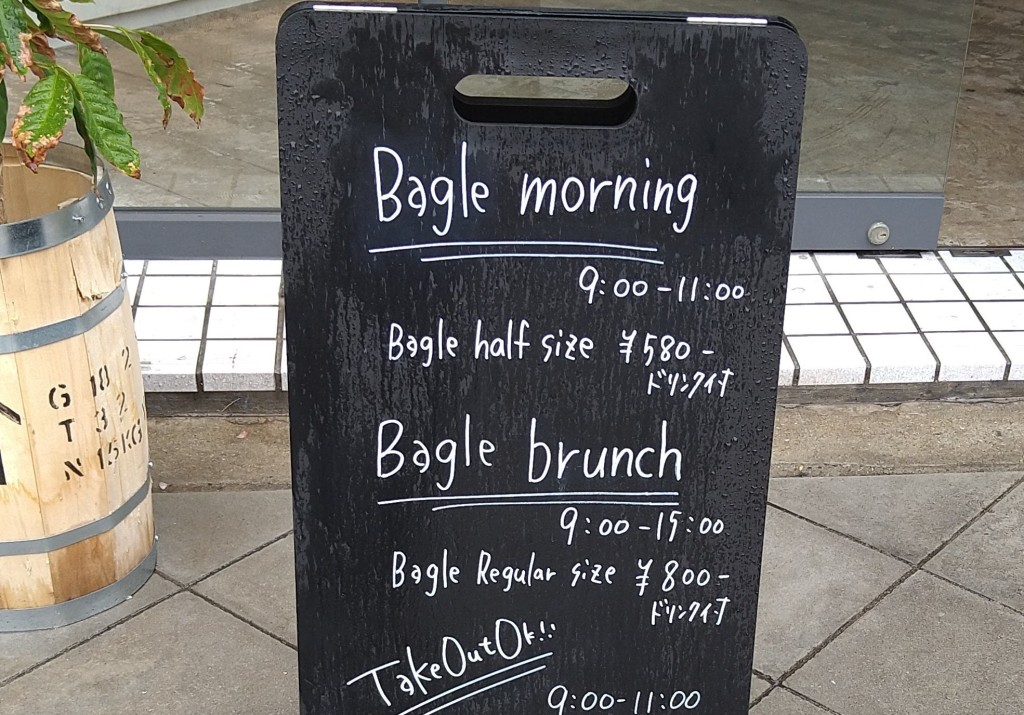 Bagle morning
9:00-11:00
Bagle half size ¥580-
ドリンク付
Bagle brunch
9:00-15:00
Bagle Regular size ¥800-
ドリンク付
TakeOutOk!!
9:00-11:00
G 18 2
T 3 2
N 15KG